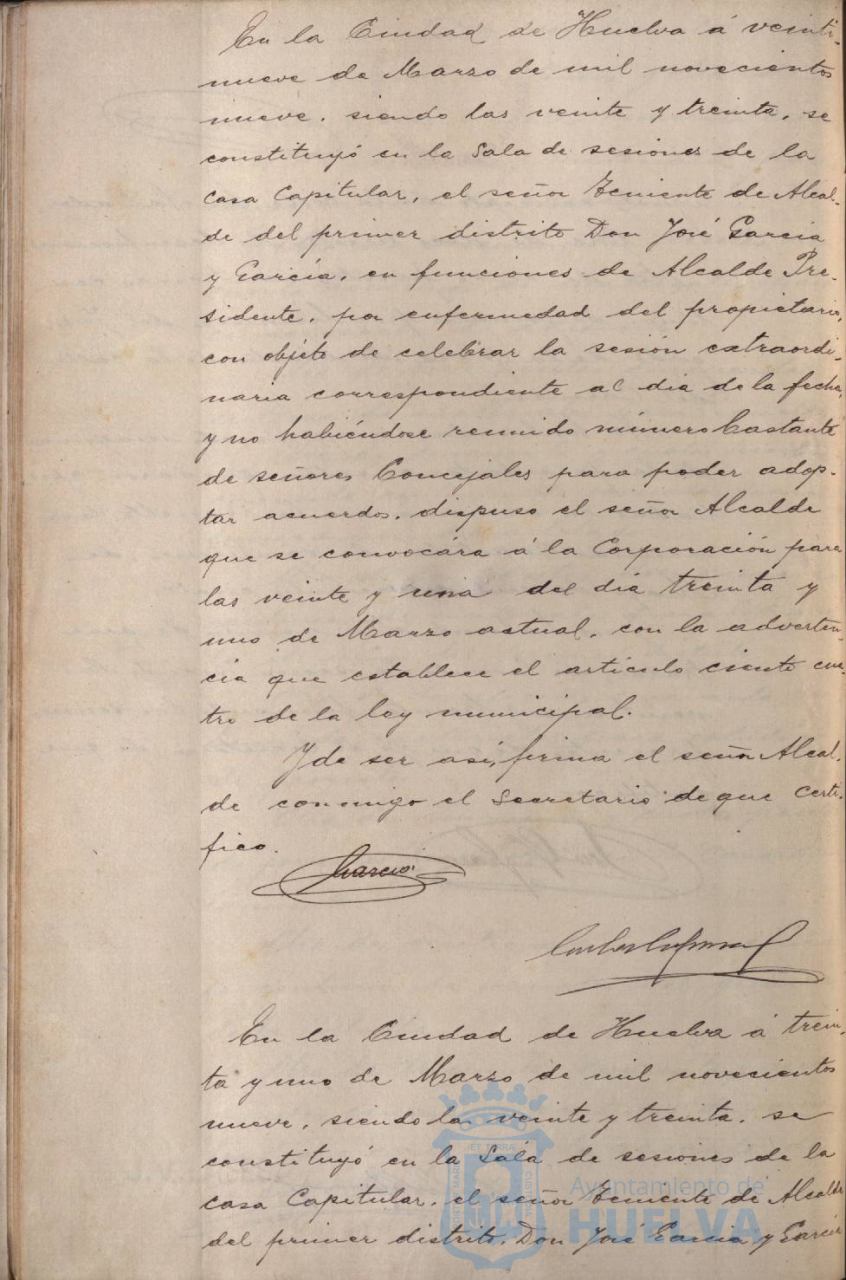 En la Ciudad de Huelva á veinti-
nueve de Marzo de mil novecientos
nueve, siendo las veinte y treinta, se
constituyó en la Sala de sesiones de la
Casa Capitular, el señor Teniente de Alcal-
de del primer distrito Don José Garcia
y García, en funciones de Alcalde Pre-
sidente, por enfermedad del propietario,
con objeto de celebrar la sesión extraordi-
naria correspondiente al dia de la fecha,
y no habiéndose reunido número bastante
de señores Concejales para poder adop-
tar acuerdos, dispuso el señor Alcalde
que se convocára á la Corporación para
las veinte y una del dia treinta y
uno de Marzo actual, con la adverten-
cia que establece el articulo ciento cua-
tro de la ley municipal.
Y de ser asi, firma el señor Alcal-
de conmigo el Secretario de que certi-
fico.
Garcia
En la Ciudad de Huelva á trein-
ta y uno de Marzo de mil novecientos
nueve, siendo las veinte y treinta, se
constituyó en la Sala de sesiones de la
casa Capitular, el señor Teniente de Alcalde
del primer distrito, Don José Garcia y Garcia
Ayuntamiento de
HUELVA